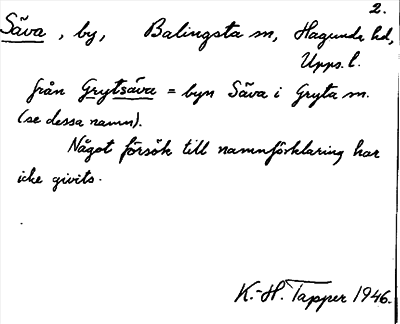 2.
Säva, by, Balingsta sn, Hagunda hd,
Upps. l.
från Grytsäva = byn Säva i Gryta sn.
(se dessa namn).
Något försök till namnförklaring har
icke givits.
K.-H. Tapper 1946.